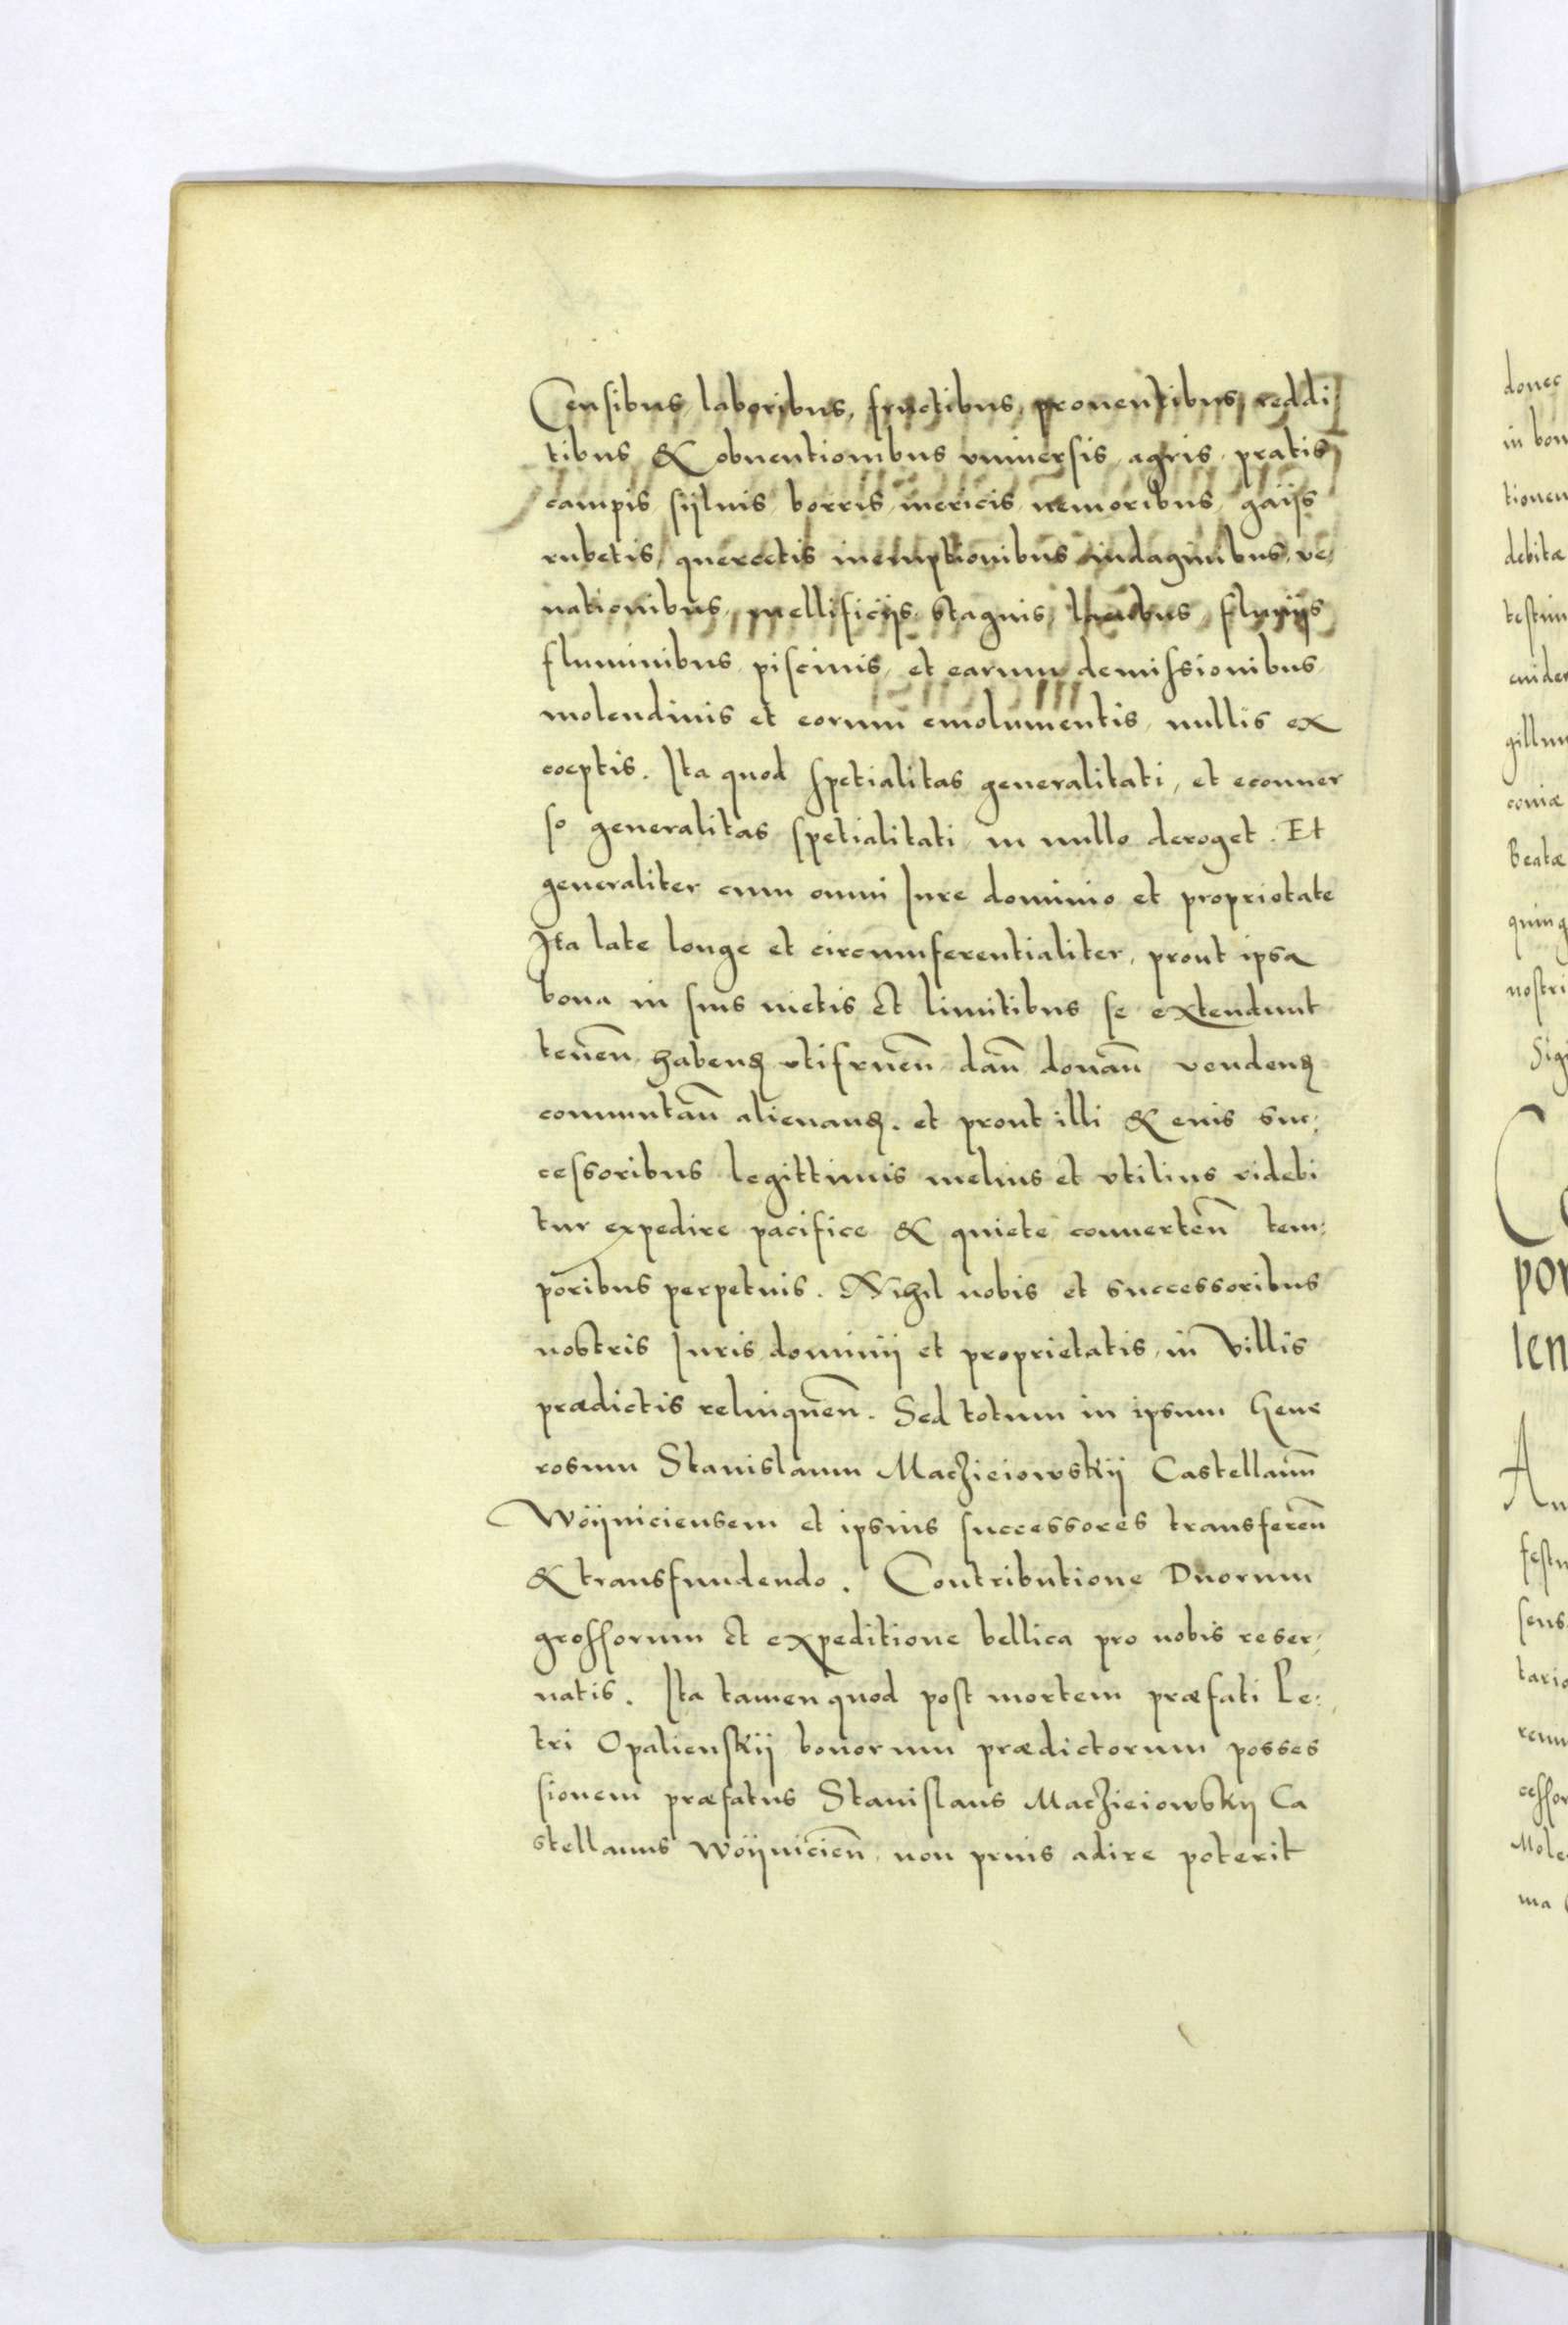 Censibus laboribus, fructibus, prouentibus, reddi
tibus & obuentionibus vniuersis agris pratis
campis sÿluis borris mericis nemoribus gaijs
rubetis, quercetis meruptionibus indaginibus, ve
nationibus, mellificijs stagnis, lacubus fluuijs
fluminibus piscinis, et earum demissionibus
molendinis et eorum emolumentis, nullis ex
coeptis. Ita quod spetialitas generalitati, et econuer
so generalitas spetialitati in nullo deroget. Et
generaliter cum omni Iure dominio et proprietate
Ita late longe et circumferentialiter, prout ipsa
bona in suis metis et limitibus se extendunt
teneñ habenđ vtifrueñ dañ donañ vendenđ
commutañ alienanđ. et prout illi & eius suc:
cessoribus legittimis melius et vtilius videbi
tur expedire pacifice & quiete conuerteñ tem:
poribus perpetuis. Nihil nobis et successoribus
nostris Iuris dominij et proprietatis, in Villis
prædictis relinqueñ. Sed totum in ipsum Gene
rosum Stanislaum Macżieiowskij Castellanū
Wöÿniciensem et ipsius successores transfereñ
& transfundendo. Contributione Duorum
grossorum et expeditione bellica pro nobis reser:
uatis. Ita tamen quod post mortem præfati Pe:
tri Opalienskij bonorum prædictorum posses
sionem præfatus Stanislaus Macżieiowskij Ca
stellanus Wöÿnicieñ, non prius adire poterit
donec
in bon
tionem
debitæ
testim
euiden
gillum
coniæ
Beatæ
quing
nostri
Sigi
por
len
An
festu
sens
tario
renu
cessor
Mole
ma